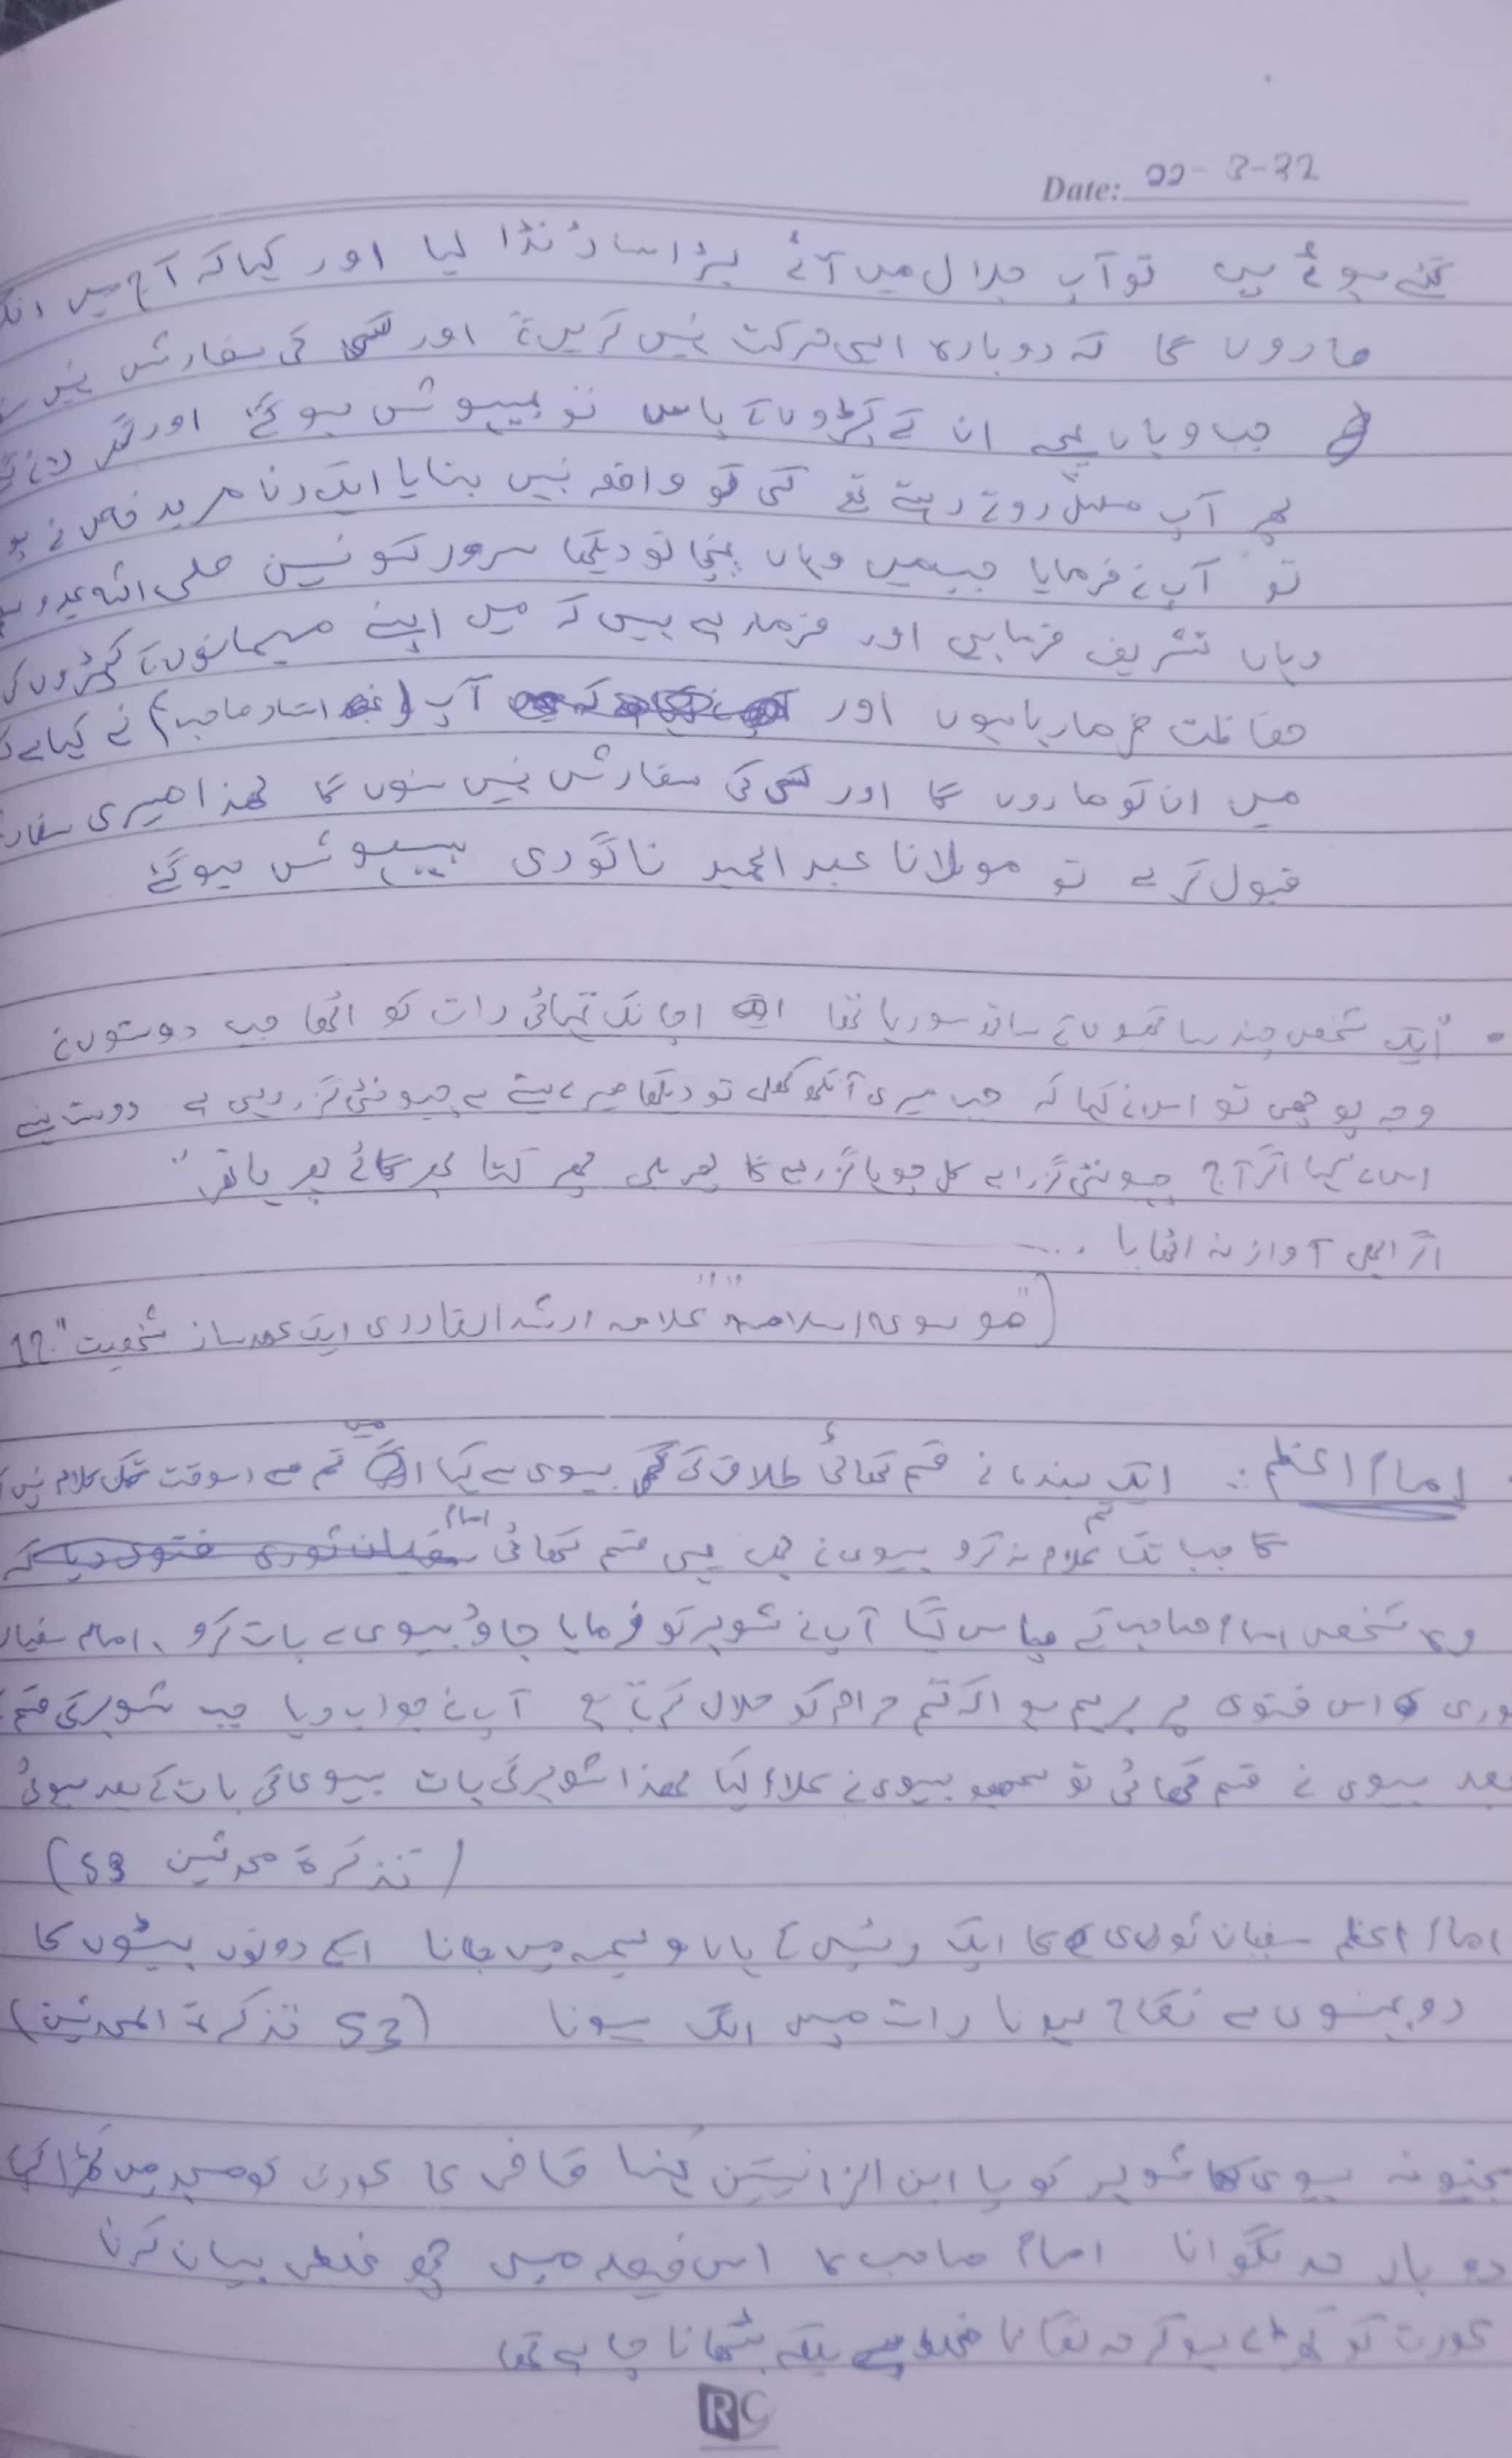 Date: 22-3-22
گئے ہوئے ہیں تو آپ جلال میں آئے بڑا سا ڈنڈا لیا اور کہا کہ آج میں
ماروں گا کہ دوبارہ ایسی حرکت نہیں کریں گے اور کسی کی سفارش نہیں
جب وہاں پہنچے ان کے کپڑوں کے پاس تو بیہوش ہو گئے اور گھر
پھر آپ مسلسل روتے رہتے تھے کسی کو واقعہ نہیں بتایا ایک دن مرید خاص نے
تو آپ نے فرمایا جب میں وہاں پہنچا تو دیکھا سرور کونین صلی اللہ علیہ وسلم
وہاں تشریف فرما ہیں اور فرما رہے ہیں کہ میں اپنے مہمانوں کے کپڑوں کی
حفاظت فرما رہا ہوں اور آپ (استاد صاحب) نے کہا ہے کہ
میں ان کو ماروں گا اور کسی کی سفارش نہیں سنوں گا لھذا میری سفارش
قبول کرے تو مولانا عبد الحمید ناگوری بیہوش ہو گئے
• "ایک شخص چند ساتھیوں کے ساتھ سو رہا تھا اچانک تہائی رات کو اٹھا جب دوستوں نے
وجہ پوچھی تو اس نے کہا کہ جب میری آنکھ کھلی تو دیکھا میرے سینے سے چیونٹی گزر رہی ہے دوست ہنسے
اس نے کہا اگر آج چیونٹی گزرا ہے کل چوہا گزرے گا پھر بلی پھر کتا پھر گائے پھر ہاتھی"
اگر ابھی آواز نہ اٹھایا ...
("موسوعہ اسلامیہ" علامہ ارشد القادری ایک عہد ساز شخصیت" 12
امام اعظم :: ایک بندہ نے قسم کھائی طلاق کی بیوی سے کہا میں تم سے اسوقت تک کلام نہیں
گا جب تک تم کلام نہ کرو بیوی نے بھی قسم کھائی
وہ شخص امام صاحب کے پاس گیا آپ نے شوہر کو فرمایا جاؤ بیوی سے بات کرو ، امام سفیان
ثوری اس فتوی پر برہم ہوے کہ تم حرام کو حلال کرتے ہو آپ نے جواب دیا جب شوہر کی قسم کے
بعد بیوی نے قسم کھائی تو بیوی نے کلام کیا لھذا شوہر کی بات بیوی کی بات کے بعد ہوئی
(تذکرۃ محدثین 53)
امام اعظم سفیان ثوری کا ایک رئیس کے ہاں ولیمہ میں جانا اسکے دونوں بیٹوں کا
دو بہنوں سے نکاح ہونا رات میں الگ سونا (53 تذکرۃ المحدثین)
مجنونہ بیوی کا شوہر کو یا ابن الزانیتین کہنا قاضی کا عورت کو مسجد میں کھڑا کرکے
دو بار حد لگوانا امام صاحب کا اس فیصلہ میں چھ غلطی بیان کرنا
عورت کو کھڑے ہو کر حد لگانا غلط ہے بلکہ بٹھانا چاہیے تھا
RC